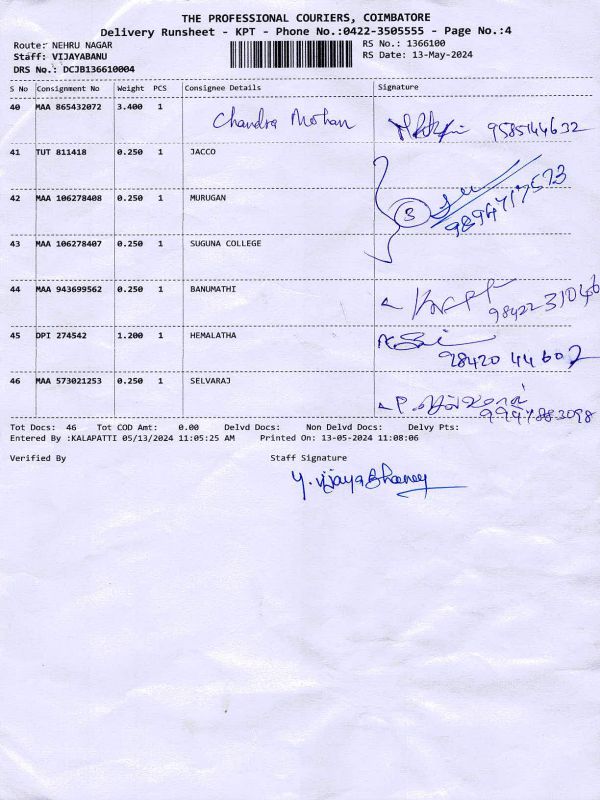 THE PROFESSIONAL COURIERS, COIMBATORE
Delivery Runsheet - KPT - Phone No.:0422-3505555 - Page No.:4
Route: NEHRU NAGAR RS No.: 1366100
Staff: VIJAYABANU RS Date: 13-May-2024
DRS No.: DCJB136610004
S No Consignment No Weight PCS Consignee Details Signature
40 MAA 865432072 3.400 1 Chandra Mohan 9585144632
41 TUT 811418 0.250 1 JACCO
42 MAA 106278408 0.250 1 MURUGAN 3 9894717573
43 MAA 106278407 0.250 1 SUGUNA COLLEGE
44 MAA 943699562 0.250 1 BANUMATHI 9842231046
45 DPI 274542 1.200 1 HEMALATHA 98420 44602
46 MAA 573021253 0.250 1 SELVARAJ
Tot Docs: 46 Tot COD Amt: 0.00 Delvd Docs: Non Delvd Docs: Delvy Pts:
Entered By :KALAPATTI 05/13/2024 11:05:25 AM Printed On: 13-05-2024 11:08:06
Verified By Staff Signature